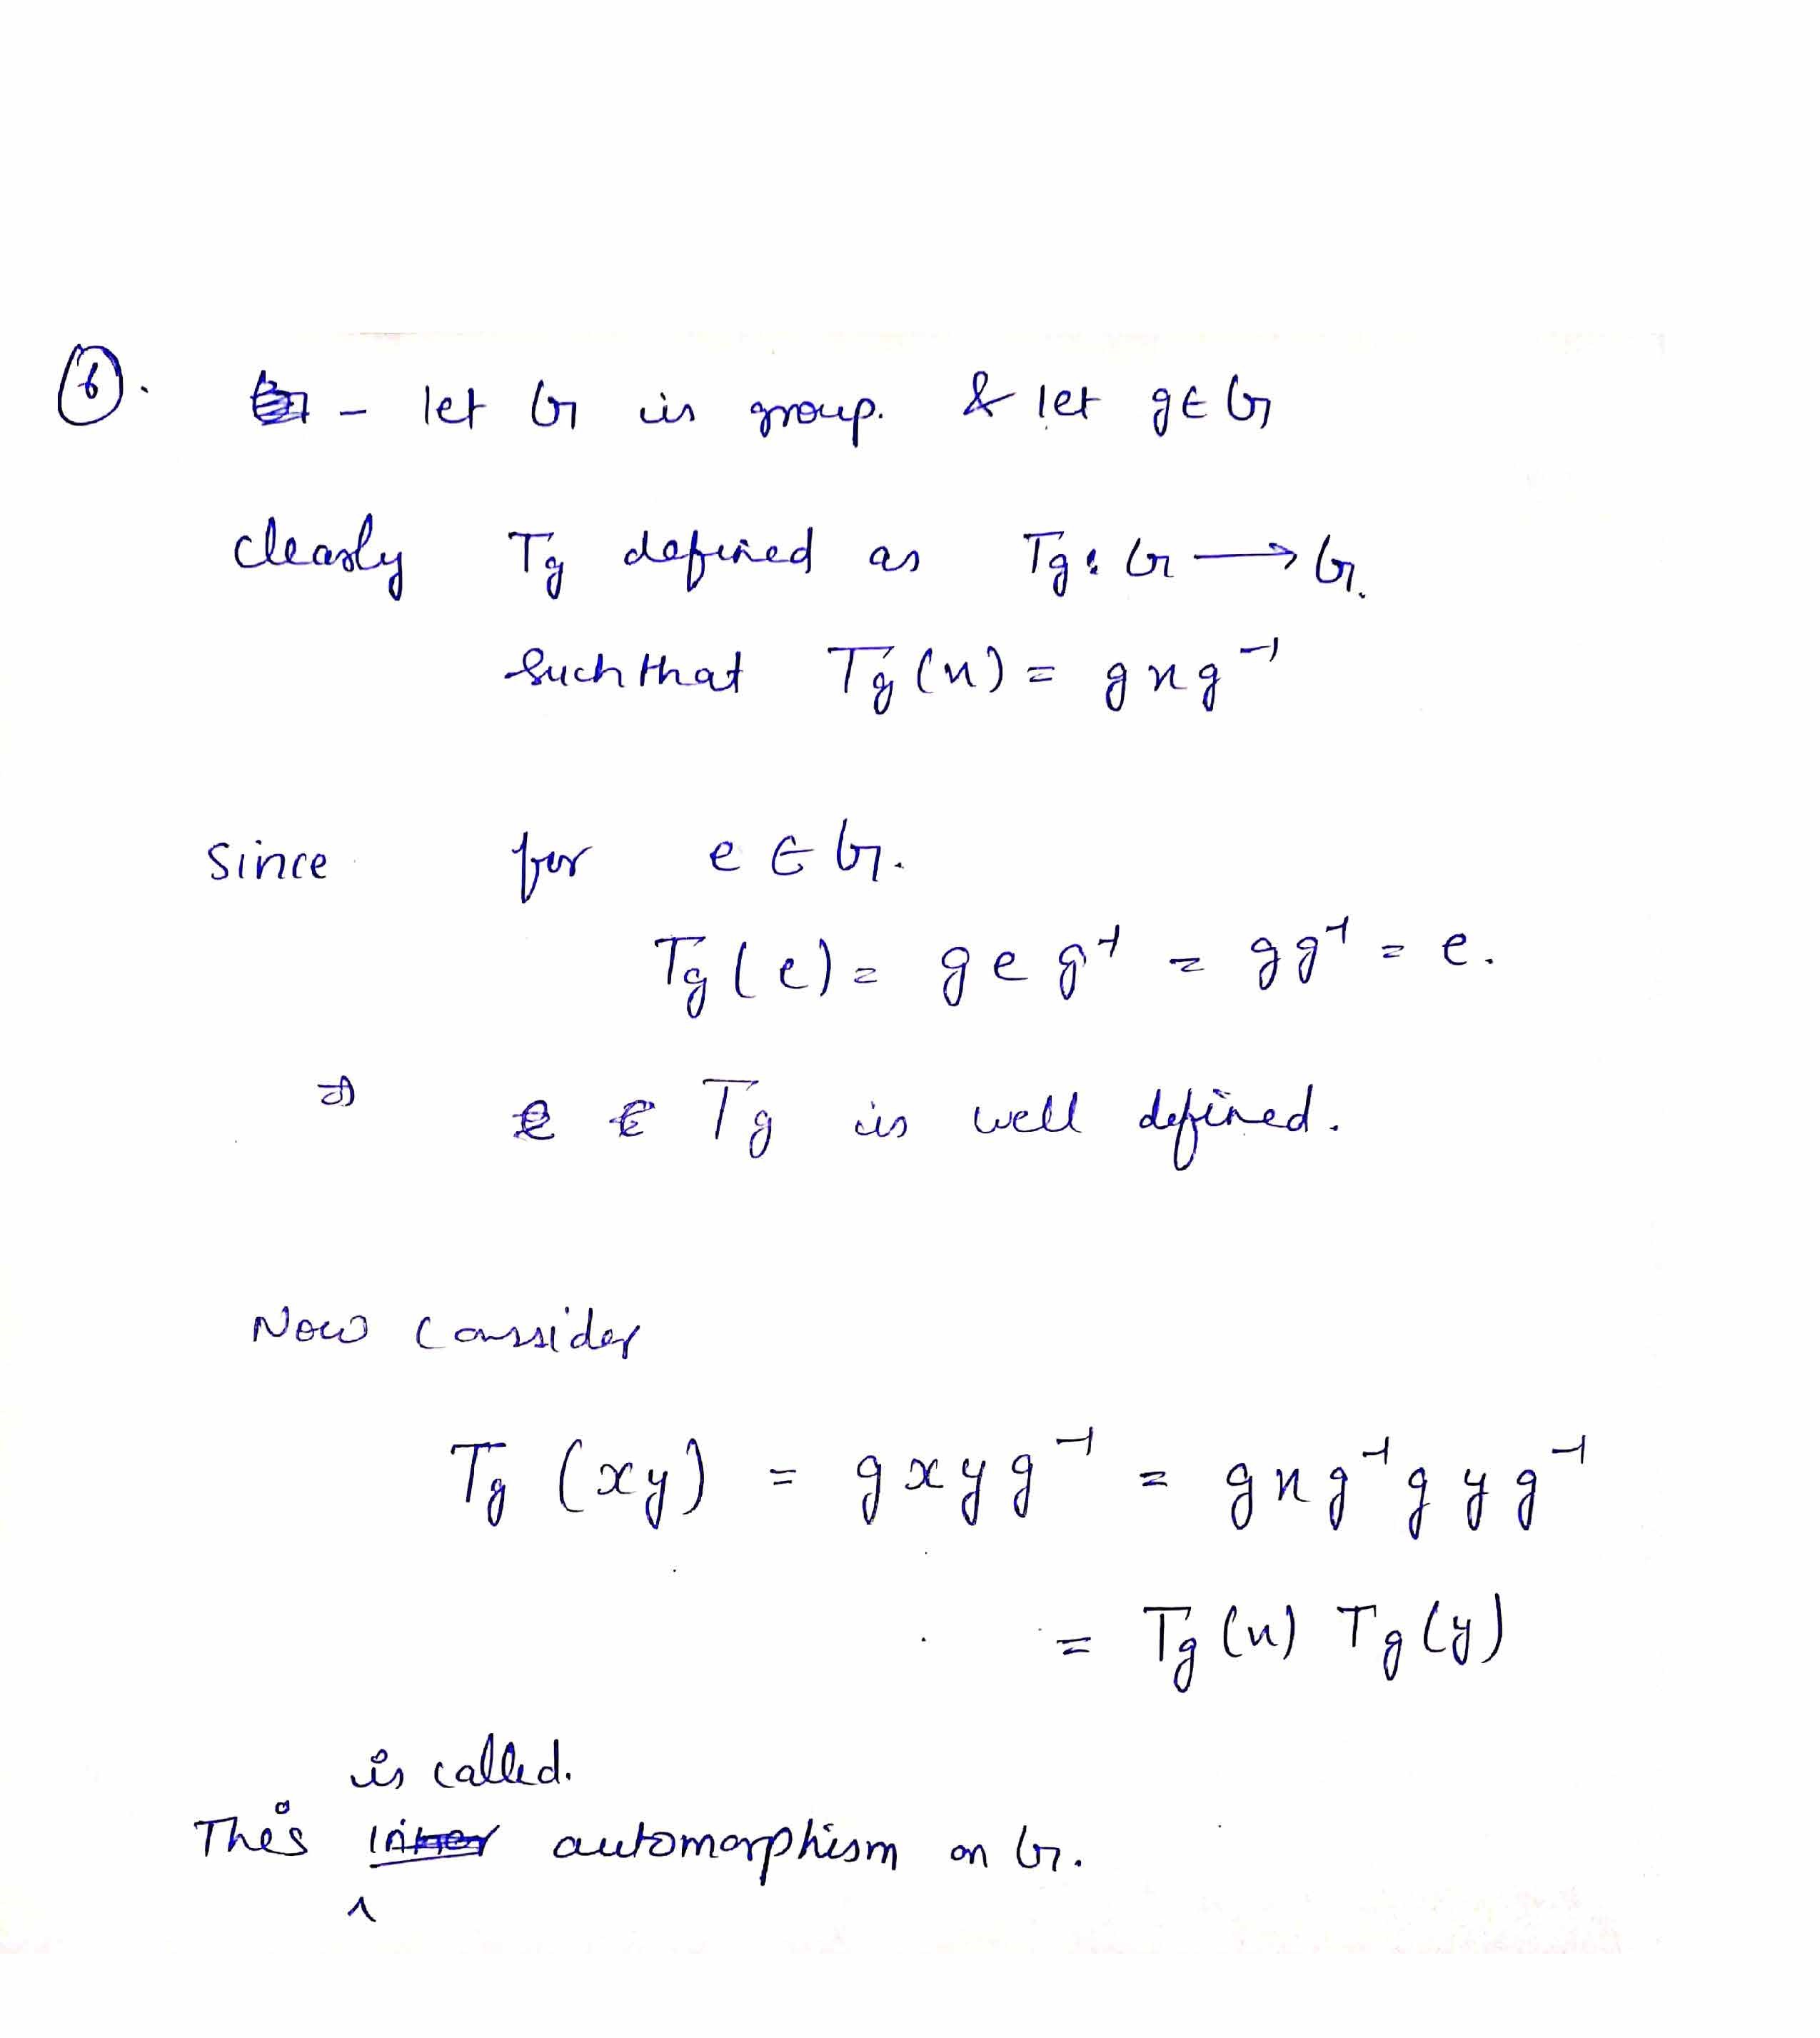 6. - let G is group. & let g∈G
clearly Tg defined as Tg : G ⟶ G.
such that Tg(x) = gxg⁻¹
since for e ∈ G.
Tg(e) = geg⁻¹ = gg⁻¹ = e.
⇒ Tg is well defined.
Now consider
Tg (xy) = gxyg⁻¹ = gxg⁻¹gyg⁻¹
= Tg(x) Tg(y)
is called.
This automorphism on G.